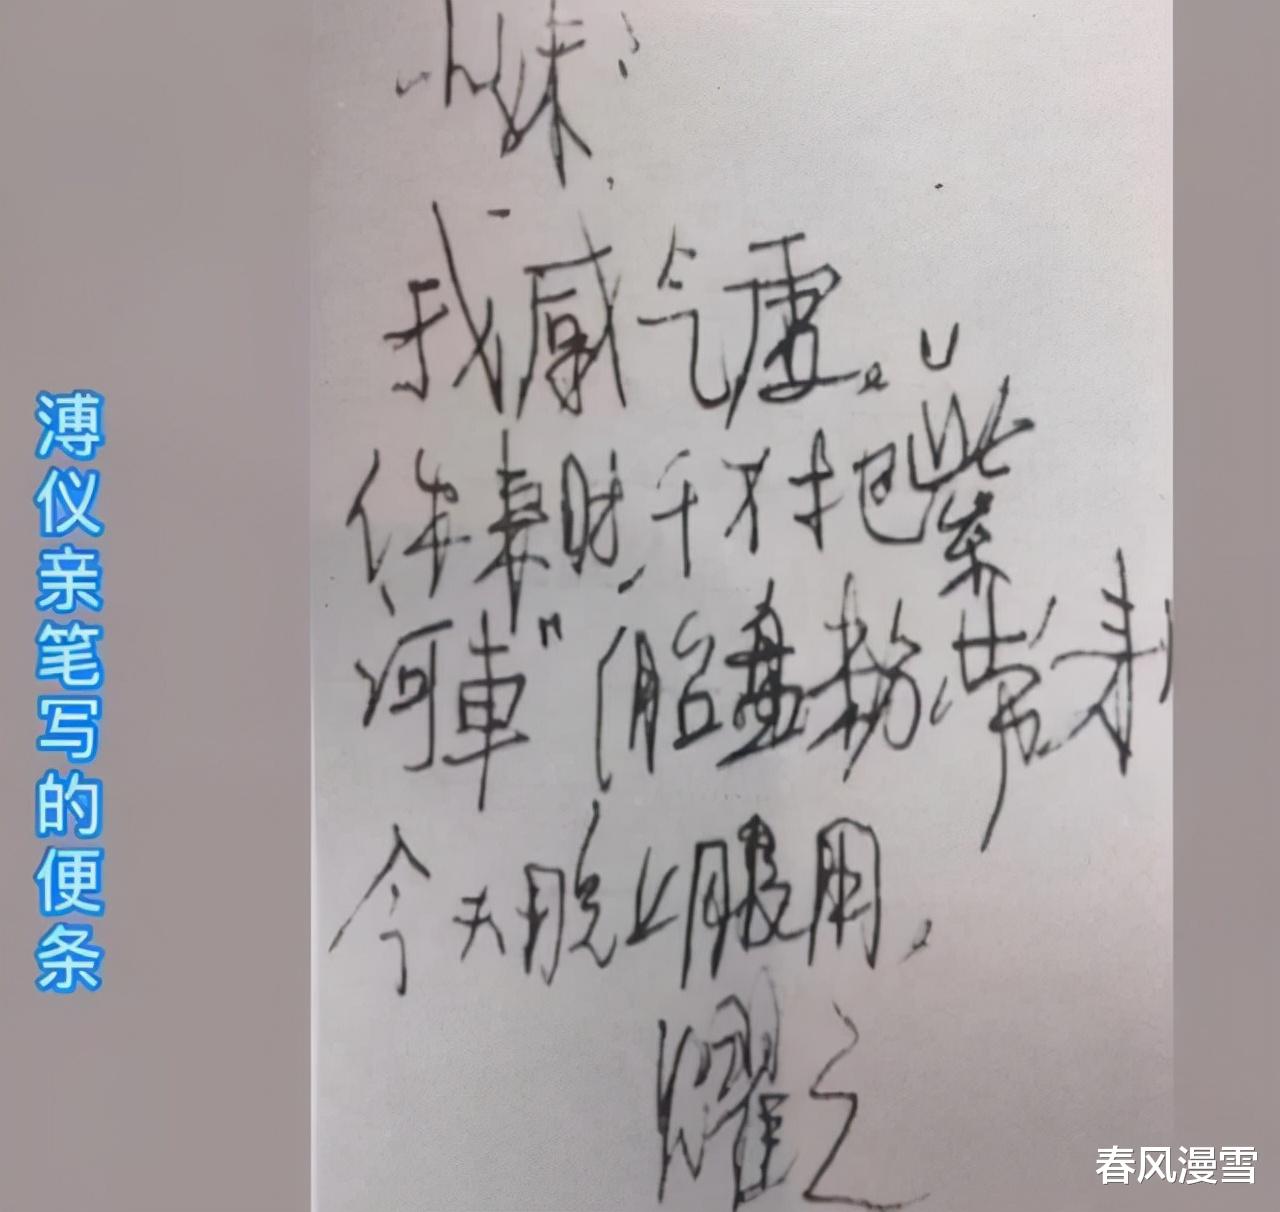 溥仪亲笔写的便条
小妹：
我感气虚。
你来时，千万把“紫
河車”（胎盘粉）带来
今天晚上服用，
耀之
春风漫雪